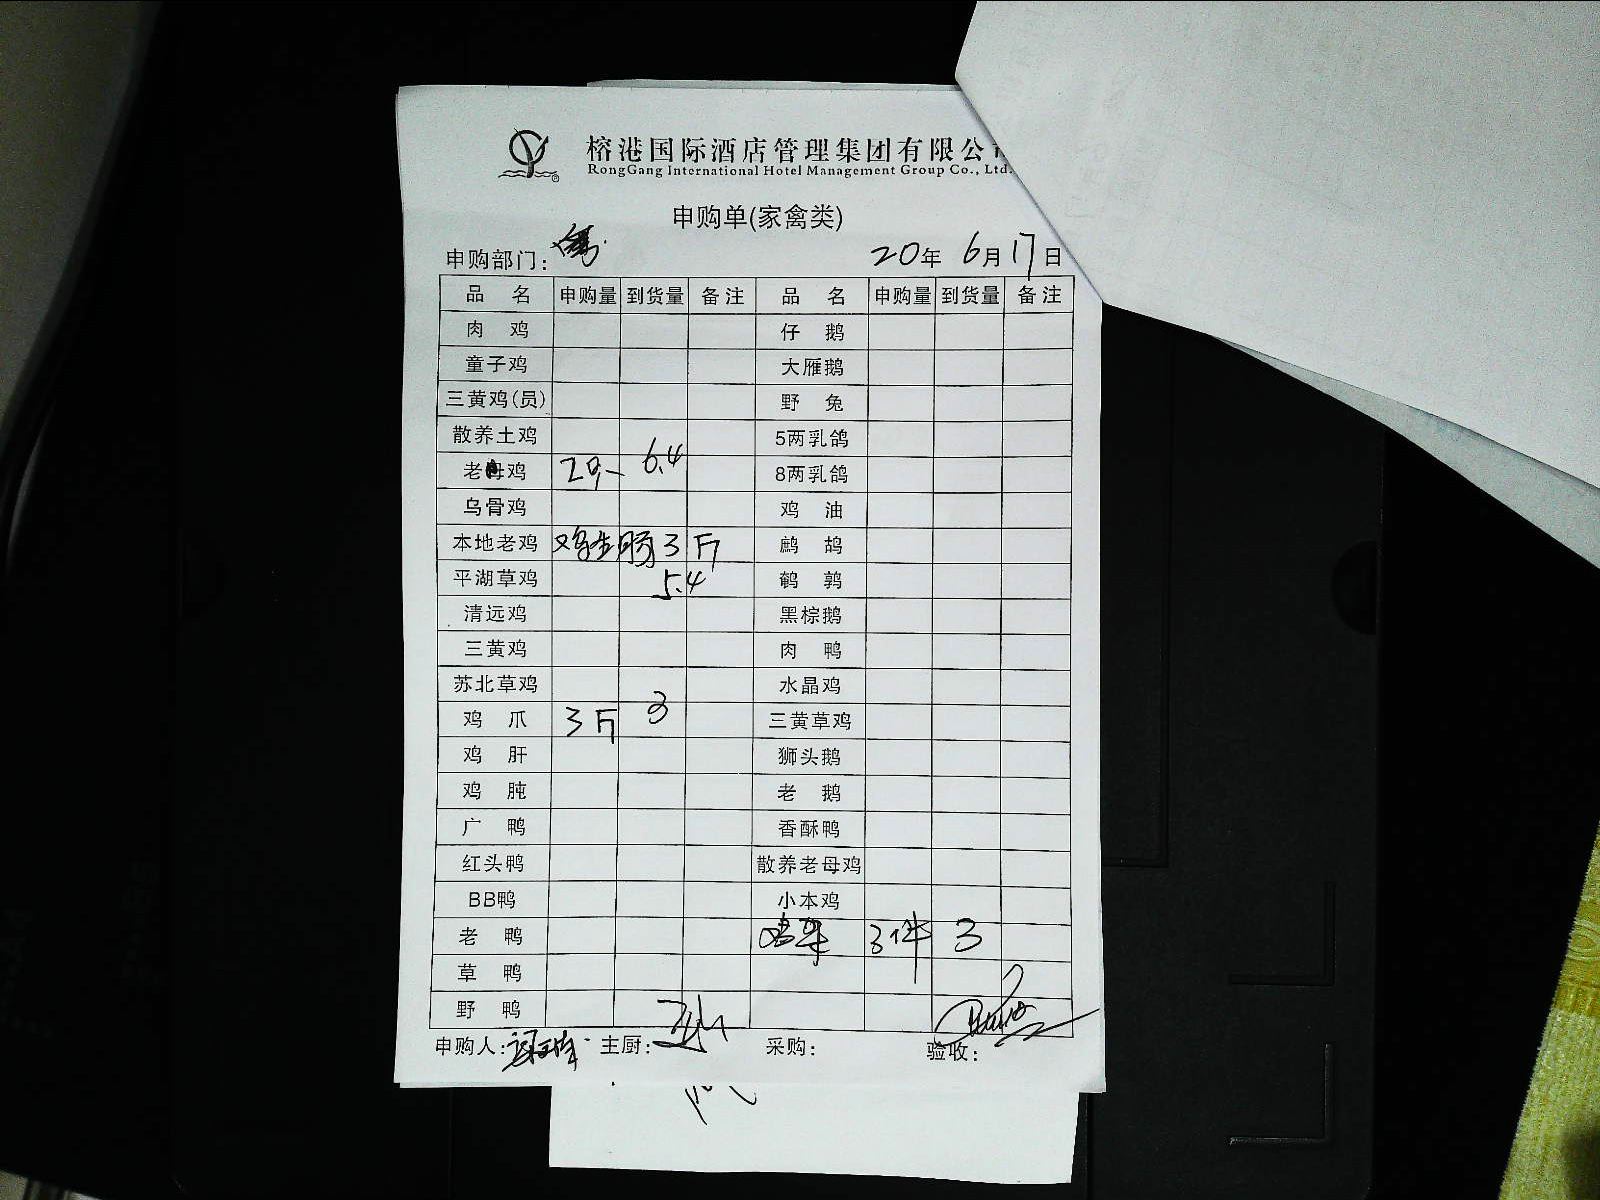 榕港国际酒店管理集团有限公
RongGang International Hotel Management Group Co., Ltd.
申购单(家禽类)
申购部门: 20年 6月17日
品 名 申购量 到货量 备注 品 名 申购量 到货量 备注
肉 鸡 仔 鹅
童子鸡 大雁鹅
三黄鸡(员) 野 兔
散养土鸡 5两乳鸽
老母鸡 6.4 8两乳鸽
乌骨鸡 鸡 油
本地老鸡 鸡生肠3斤 鹧 鸪
平湖草鸡 5.4 鹌 鹑
清远鸡 黑棕鹅
三黄鸡 肉 鸭
苏北草鸡 水晶鸡
鸡 爪 3斤 3 三黄草鸡
鸡 肝 狮头鹅
鸡 肫 老 鹅
广 鸭 香酥鸭
红头鸭 散养老母鸡
BB鸭 小本鸡
老 鸭 3件 3
草 鸭
野 鸭
申购人: 主厨: 采购: 验收: